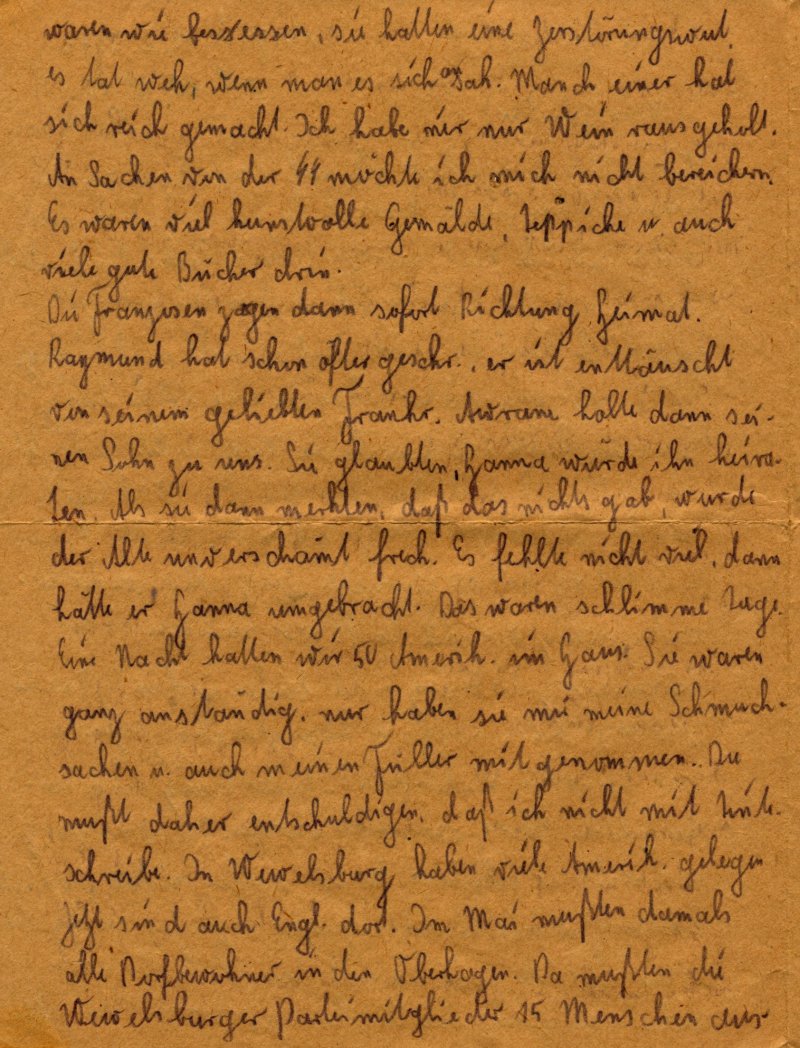 waren wie besessen, sie hatten eine Zerstörungswut
es tat weh, wenn man es sich ansah. Manch einer hat
sich reich gemacht. Ich habe mir nur Wein rausgeholt.
An Sachen von der SS möchte ich mich nicht bereichern.
Es waren viel kunstvolle Gemälde, Teppiche u. auch
viele gute Bücher drin.
Die Franzosen zogen dann sofort Richtung Heimat.
Raymund hat schon öfter geschr., er ist enttäuscht
von seinem geliebten Frankr. Awrame holte dann sei-
nen Sohn zu uns. Sie glaubten, Hanna würde ihn heira-
ten. Als sie dann merkten, daß das nichts gab, wurde
der Alte unverschämt frech. Es fehlte nicht viel, dann
hätte er Hanna umgebracht. Das waren schlimme Tage.
Eine Nacht hatten wir 50 Amerik. im Haus. Sie waren
ganz anständig, nur haben sie mir meine Schmuck-
sachen u. auch meinen Füller mitgenommen. Du
mußt daher entschuldigen, daß ich nicht mit Tinte
schreibe. In Wewelsburg haben viele Amerik. gelegen
Jetzt sind auch Engl. dort. Im Mai mußten damals
alle Dorfbewohner in den Oberhagen. Da mußten die
Wewelsburger Parteimitglieder 15 Menschen aus-